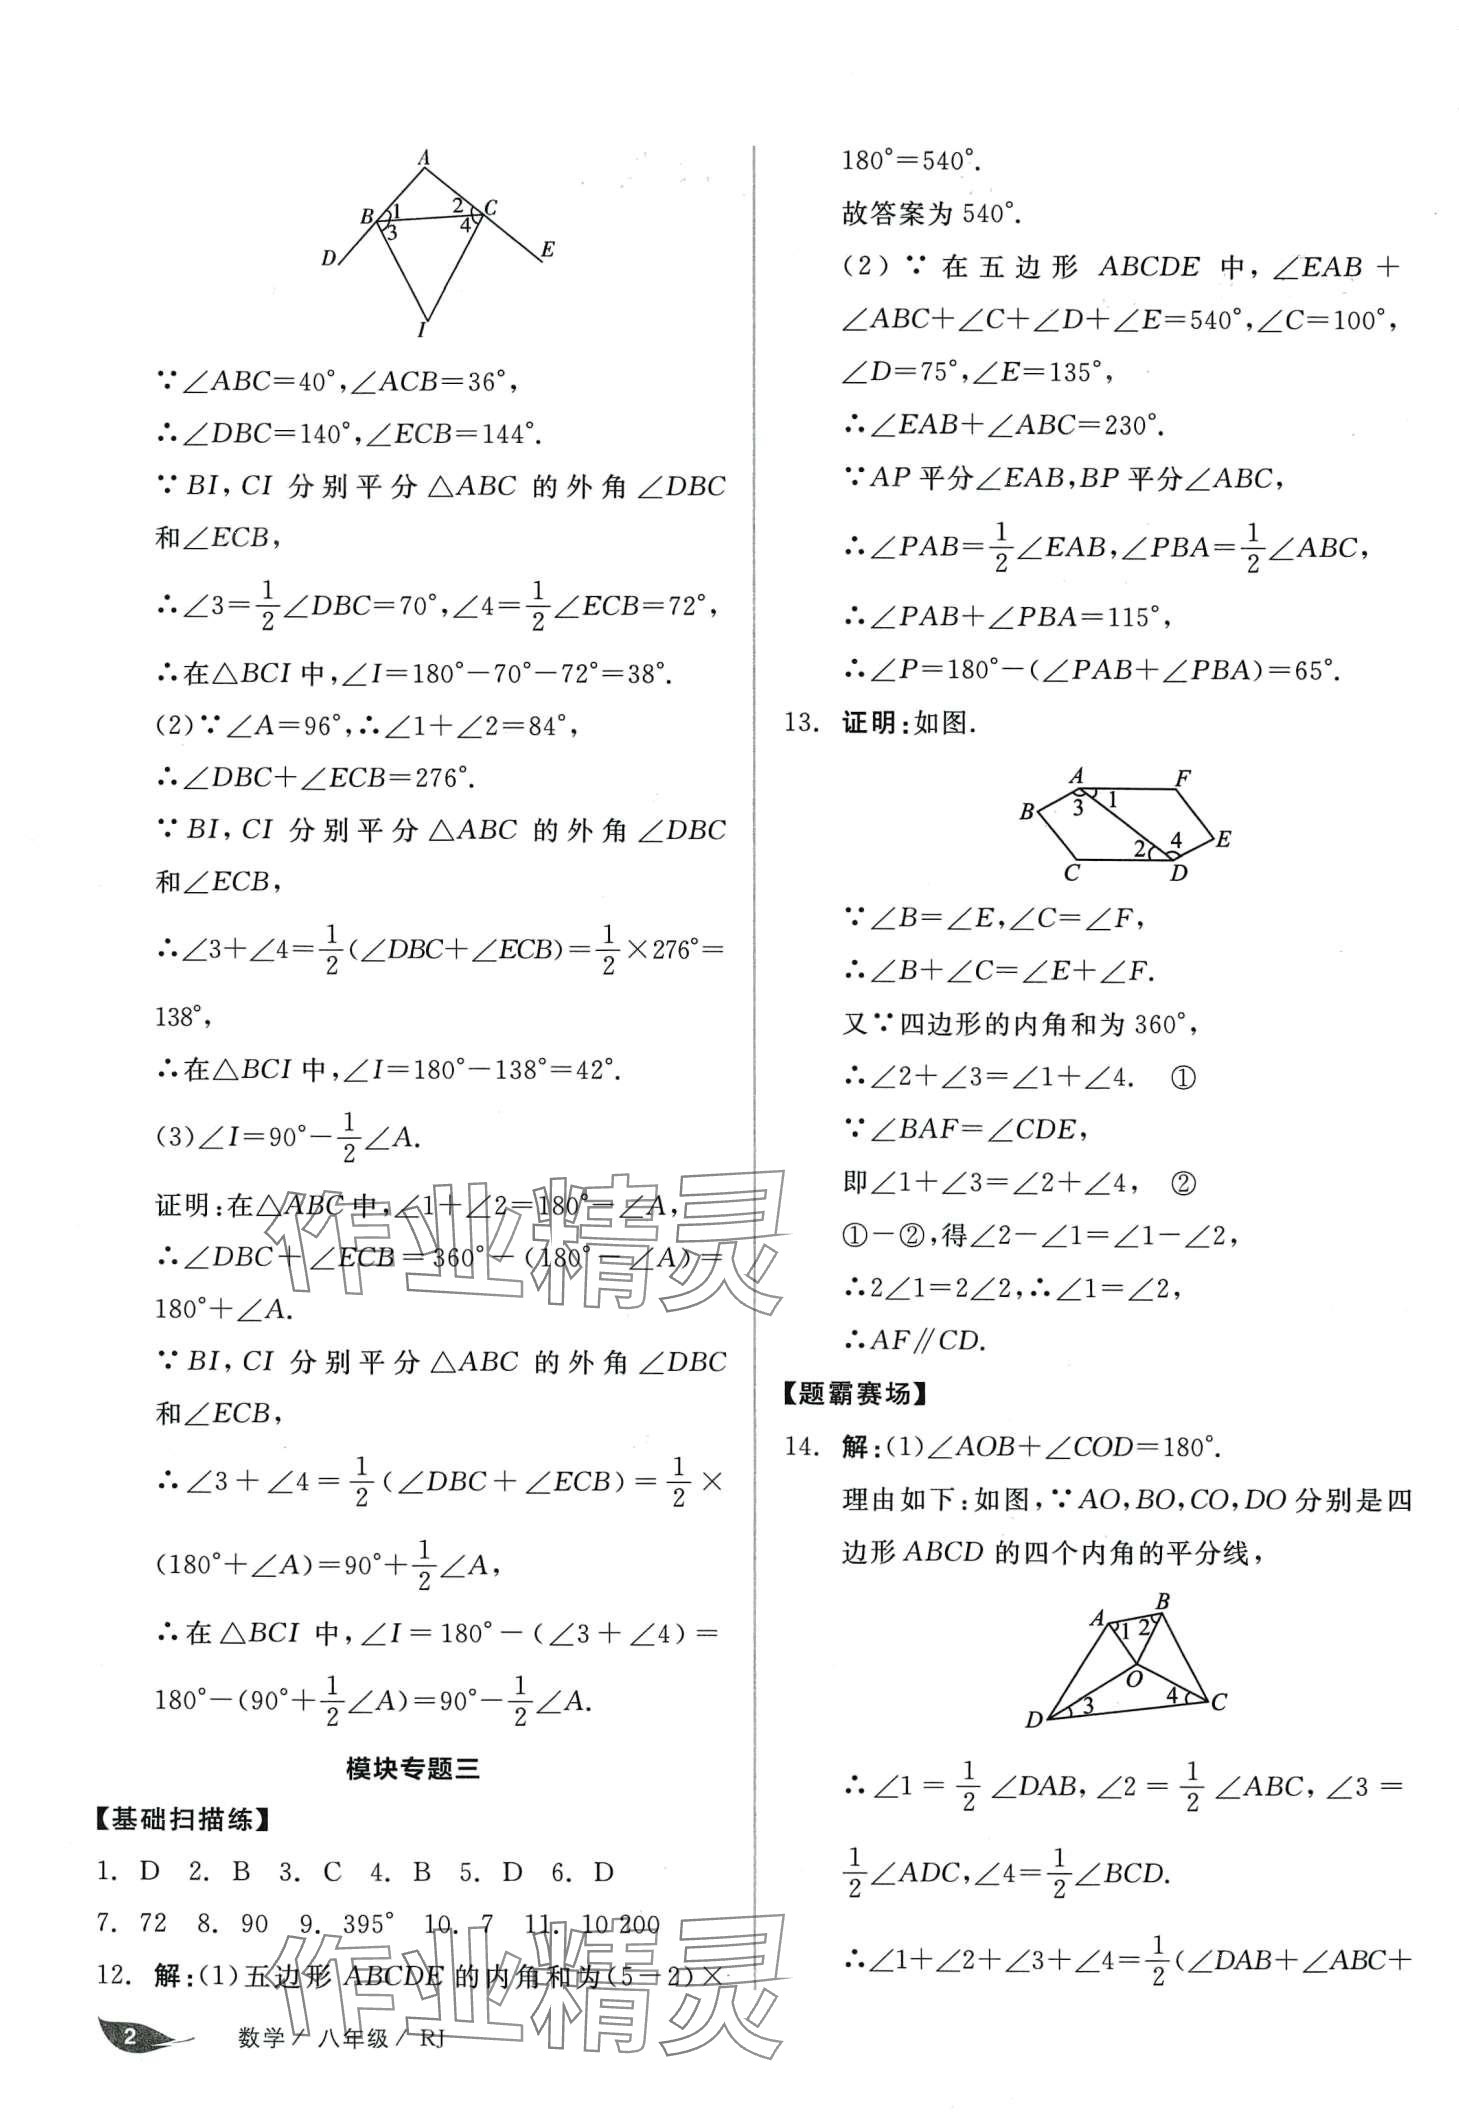 A
B
1
2
C
3
4
D
E
I
∵∠ABC=40°,∠ACB=36°,
∴∠DBC=140°,∠ECB=144°.
∵BI,CI 分别平分△ABC 的外角∠DBC
和∠ECB,
∴∠3=1/2∠DBC=70°,∠4=1/2∠ECB=72°,
∴在△BCI 中,∠I=180°-70°-72°=38°.
(2)∵∠A=96°,∴∠1+∠2=84°,
∴∠DBC+∠ECB=276°.
∵BI,CI 分别平分△ABC 的外角∠DBC
和∠ECB,
∴∠3+∠4=1/2(∠DBC+∠ECB)=1/2×276°=
138°,
∴在△BCI 中,∠I=180°-138°=42°.
(3)∠I=90°-1/2∠A.
证明:在△ABC 中,∠1+∠2=180°-∠A,
∴∠DBC+∠ECB=360°-(180°-∠A)=
180°+∠A.
∵BI,CI 分别平分△ABC 的外角∠DBC
和∠ECB,
∴∠3+∠4=1/2(∠DBC+∠ECB)=1/2×
(180°+∠A)=90°+1/2∠A,
∴在△BCI 中,∠I=180°-(∠3+∠4)=
180°-(90°+1/2∠A)=90°-1/2∠A.
模块专题三
【基础扫描练】
1. D 2. B 3. C 4. B 5. D 6. D
7. 72 8. 90 9. 395° 10. 7 11. 10 200
12. 解:(1)五边形 ABCDE 的内角和为(5-2)×
180°=540°.
故答案为 540°.
(2)∵在五边形 ABCDE 中,∠EAB+
∠ABC+∠C+∠D+∠E=540°,∠C=100°,
∠D=75°,∠E=135°,
∴∠EAB+∠ABC=230°.
∵AP 平分∠EAB,BP 平分∠ABC,
∴∠PAB=1/2∠EAB,∠PBA=1/2∠ABC,
∴∠PAB+∠PBA=115°,
∴∠P=180°-(∠PAB+∠PBA)=65°.
13. 证明:如图.
A
F
B
3
1
2
4
E
C
D
∵∠B=∠E,∠C=∠F,
∴∠B+∠C=∠E+∠F.
又∵四边形的内角和为 360°,
∴∠2+∠3=∠1+∠4. ①
∵∠BAF=∠CDE,
即∠1+∠3=∠2+∠4, ②
①-②,得∠2-∠1=∠1-∠2,
∴2∠1=2∠2,∴∠1=∠2,
∴AF∥CD.
【题霸赛场】
14. 解:(1)∠AOB+∠COD=180°.
理由如下:如图,∵AO,BO,CO,DO 分别是四
边形 ABCD 的四个内角的平分线,
B
A
1
2
O
3
4
C
D
∴∠1=1/2∠DAB,∠2=1/2∠ABC,∠3=
1/2∠ADC,∠4=1/2∠BCD.
∴∠1+∠2+∠3+∠4=1/2(∠DAB+∠ABC+
2 数学/八年级/RJ
作业精灵
作业精灵